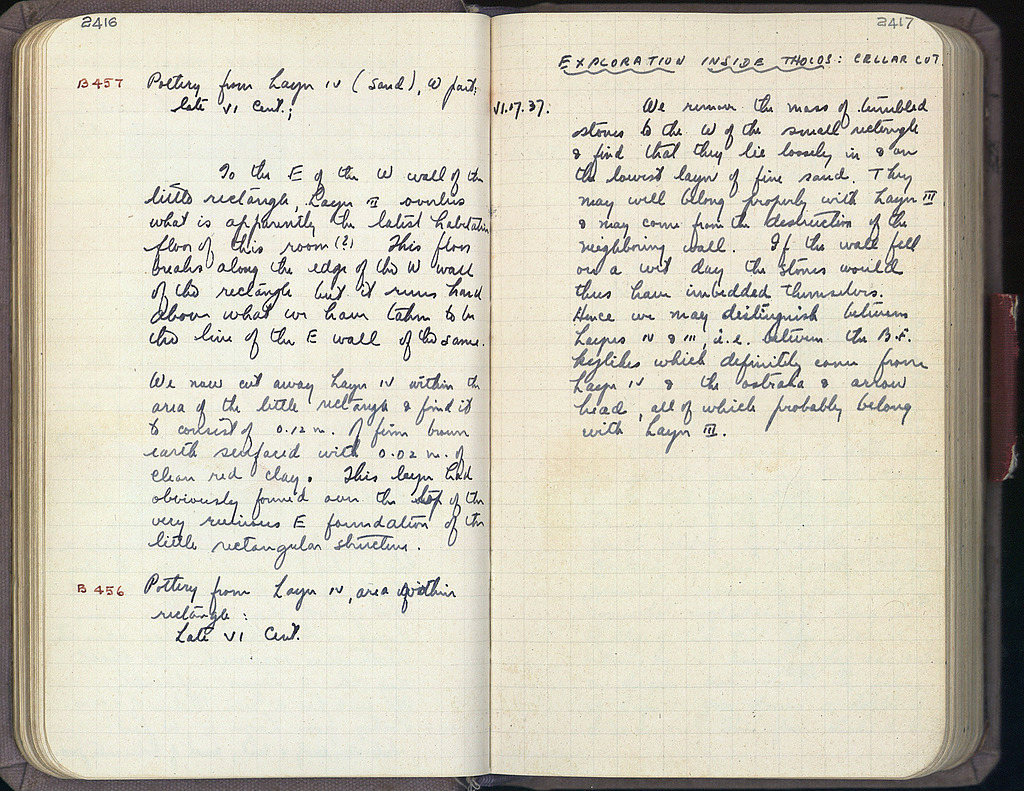 2416
B 457 Pottery from Layer IV (sand), W part:
late VI Cent.;
To the E of the W wall of the
little rectangle, Layer III overlies
what is apparently the latest habitation
floor of this room (?) This floor
breaks along the edge of the W wall
of the rectangle but it runs hard
above what we have taken to be
the line of the E wall of the same.
We now cut away Layer IV within the
area of the little rectangle & find it
to consist of 0.12 m. of firm brown
earth surfaced with 0.02 m. of
clean red clay. This layer had
obviously formed over the top of the
very ruinous E foundation of the
little rectangular structure.
B 456 Pottery from Layer IV, area within
rectangle:
Late VI Cent.
2417
EXPLORATION INSIDE THOLOS: CELLAR CUT.
VI.17.37. We remove the mass of tumbled
stones to the W of the small rectangle
& find that they lie loosely in & on
the lowest layer of fine sand. They
may well belong properly with Layer III
& may come from the destruction of the
neighboring wall. If the wall fell
on a wet day the stones would
thus have imbedded themselves.
Hence we may distinguish between
Layers IV & III, i.e. between the B.F.
kylikes which definitely come from
Layer IV & the ostraka & arrow
head, all of which probably belong
with Layer III.